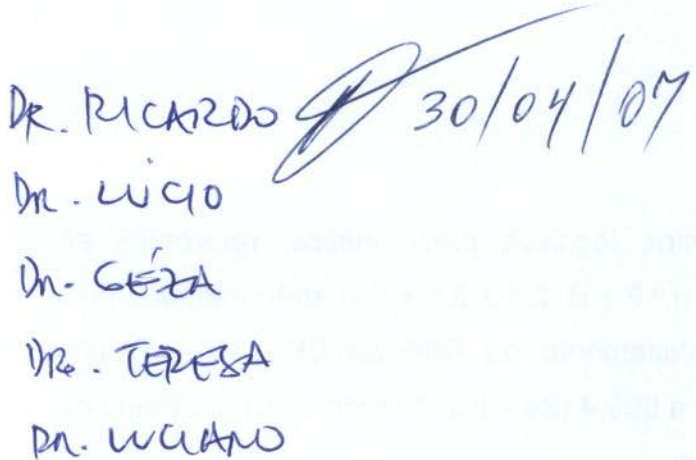 DR. RICARDO 30/04/07
DR. LÚCIO
DR. GÉZA
DRA. TERESA
DR. LUCIANO